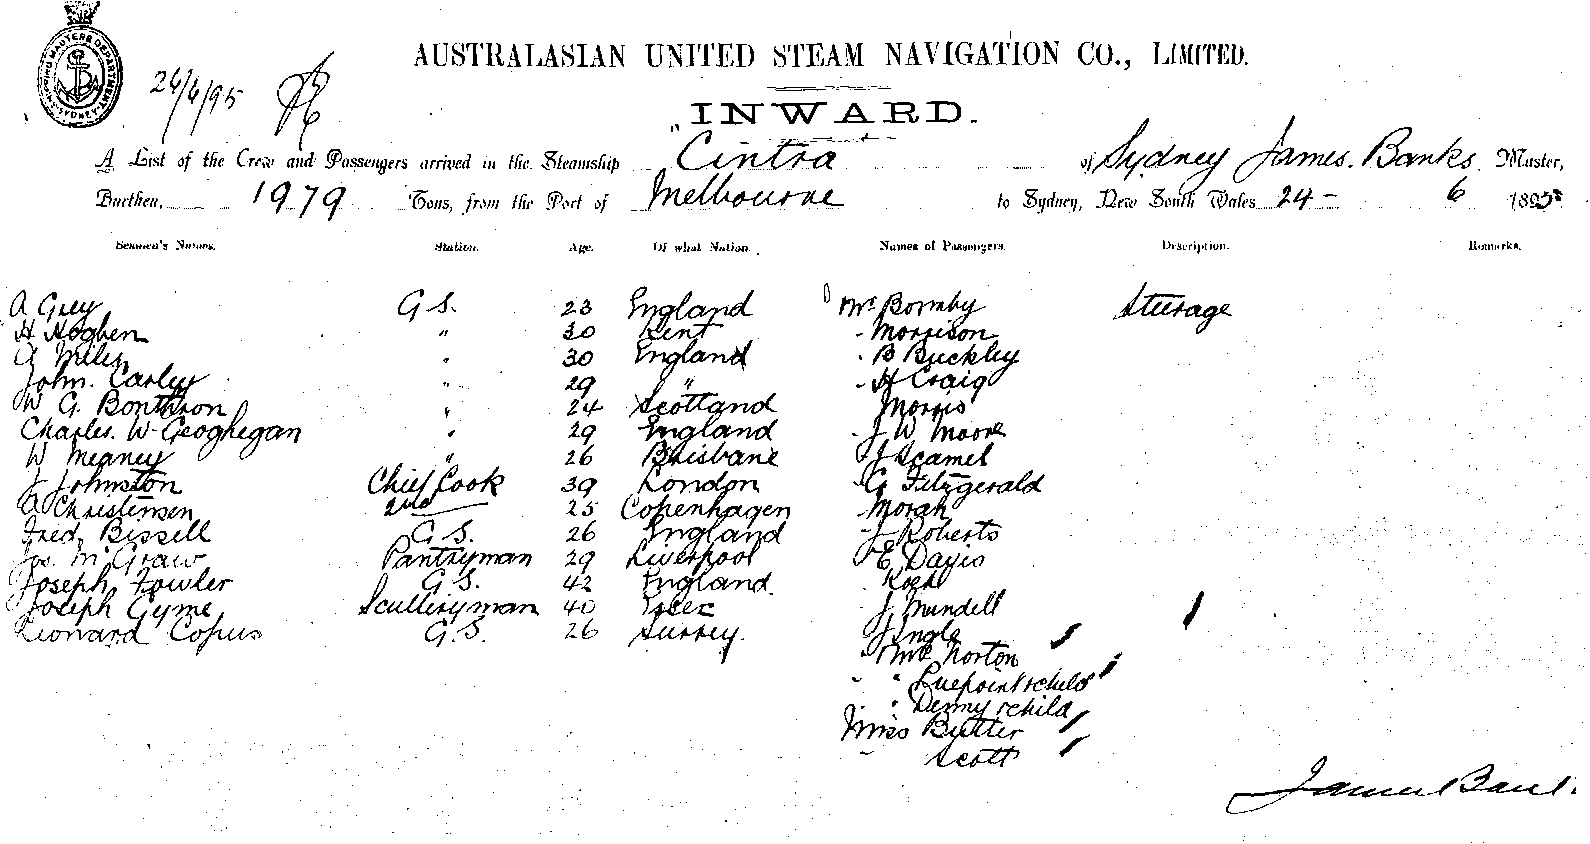 SHIPPING MASTERS DEPARTMENT SYDNEY
24/6/95
AUSTRALASIAN UNITED STEAM NAVIGATION CO., LIMITED.
INWARD.
A List of the Crew and Passengers arrived in the Steamship "Cintra of Sydney James. Banks Master,
Burthen, 1979 Tons, from the Port of Melbourne to Sydney, New South Wales 24 - 6 1895
Seamen's Names. Station. Age. Of what Nation. Names of Passengers. Description. Remarks.
A Grey G S. 23 England Mr Bormby Steerage
H Hogben " 30 Kent - Morrison
G Miles " 30 England - B Buckley
John. Carley " 29 " - H Craig
W G. Bonthron " 24 Scotland Morris
Charles. W. Geoghegan " 29 England - J W Moore
W Meaney " 26 Brisbane J Scamel
J Johnston Chief Cook 39 London G Fitzgerald
A Christensen 2nd 25 Copenhagen - Morah
Fred Bissell G S. 26 England - J Roberts
Jos. McGraw Pantryman 29 Liverpool E Davis
Joseph Fowler G S. 42 England
Joseph Gyme Sculleryman 40 J. Mundell
Leonard Copus G. S. 26 Surrey. J Ingle
Mrs Norton
- " & child
- " Denny & child
Miss Butter
- Scott
James Banks